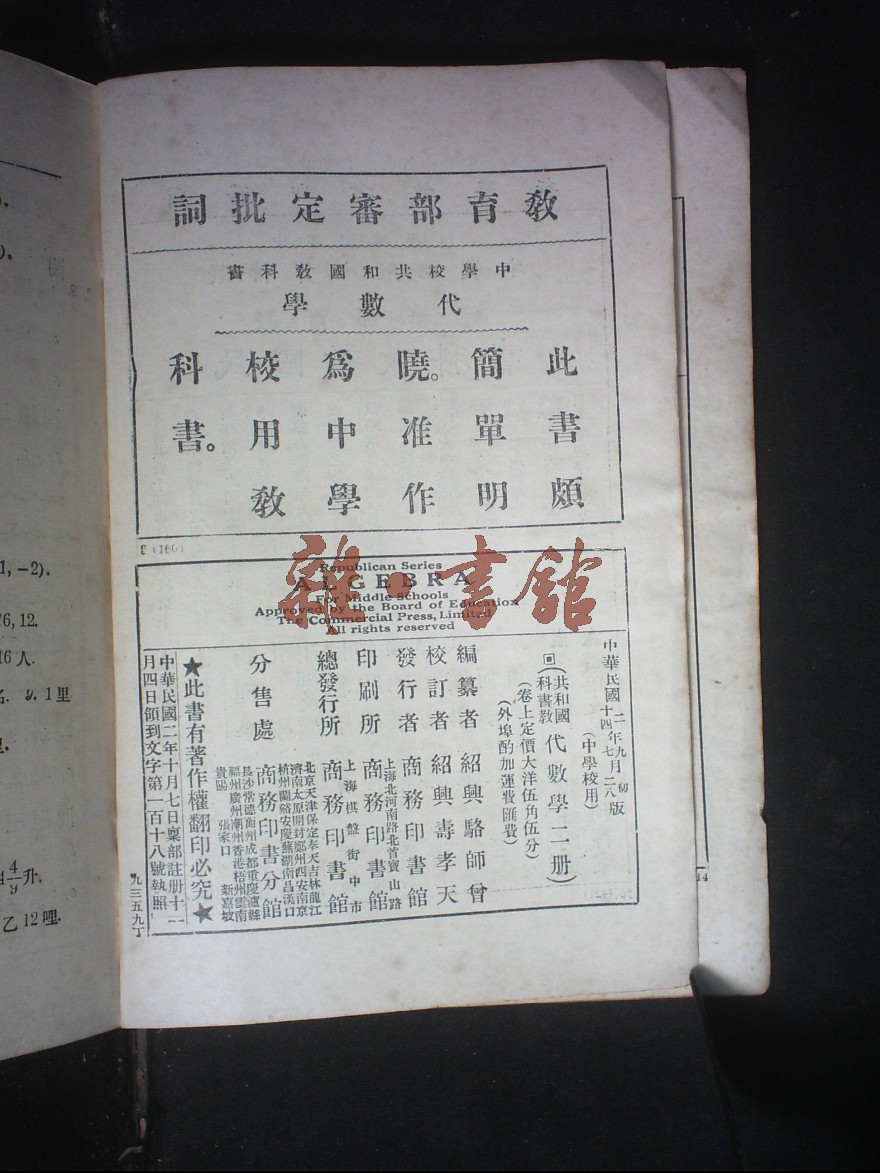 教育部審定批詞
中學校共和國教科書
代數學
此書頗
簡單明
曉。准作
爲中學
校用教
科書。
(160)
Republican Series
ALGEBRA
For Middle Schools
Approved by the Board of Education
The Commercial Press, Limited
All rights reserved
中華民國二年九月初版
十四年七月二八版
(中學校用)
共和國教科書代數學二册
(卷上定價大洋伍角伍分)
(外埠酌加運費匯費)
編纂者 紹興駱師曾
校訂者 紹興壽孝天
發行者 商務印書館
上海北河南路北首寶山路
印刷所 商務印書館
上海棋盤街中市
總發行所 商務印書館
北京天津保定奉天吉林龍江
濟南太原開封鄭州西安南京
杭州蘭谿安慶蕪湖南昌漢口
分售處 商務印書分館
長沙常德衡州成都重慶瀘縣
福州廣州潮州香港梧州雲南
貴陽 張家口 新嘉坡
★此書有著作權翻印必究★
中華民國二年十月七日稟部註册十二
月四日領到文字第一百十八號執照
九三五九丁
雜·書館
1, -2).
26, 12.
16人.
9. 1里
4/9升.
乙12哩.
14